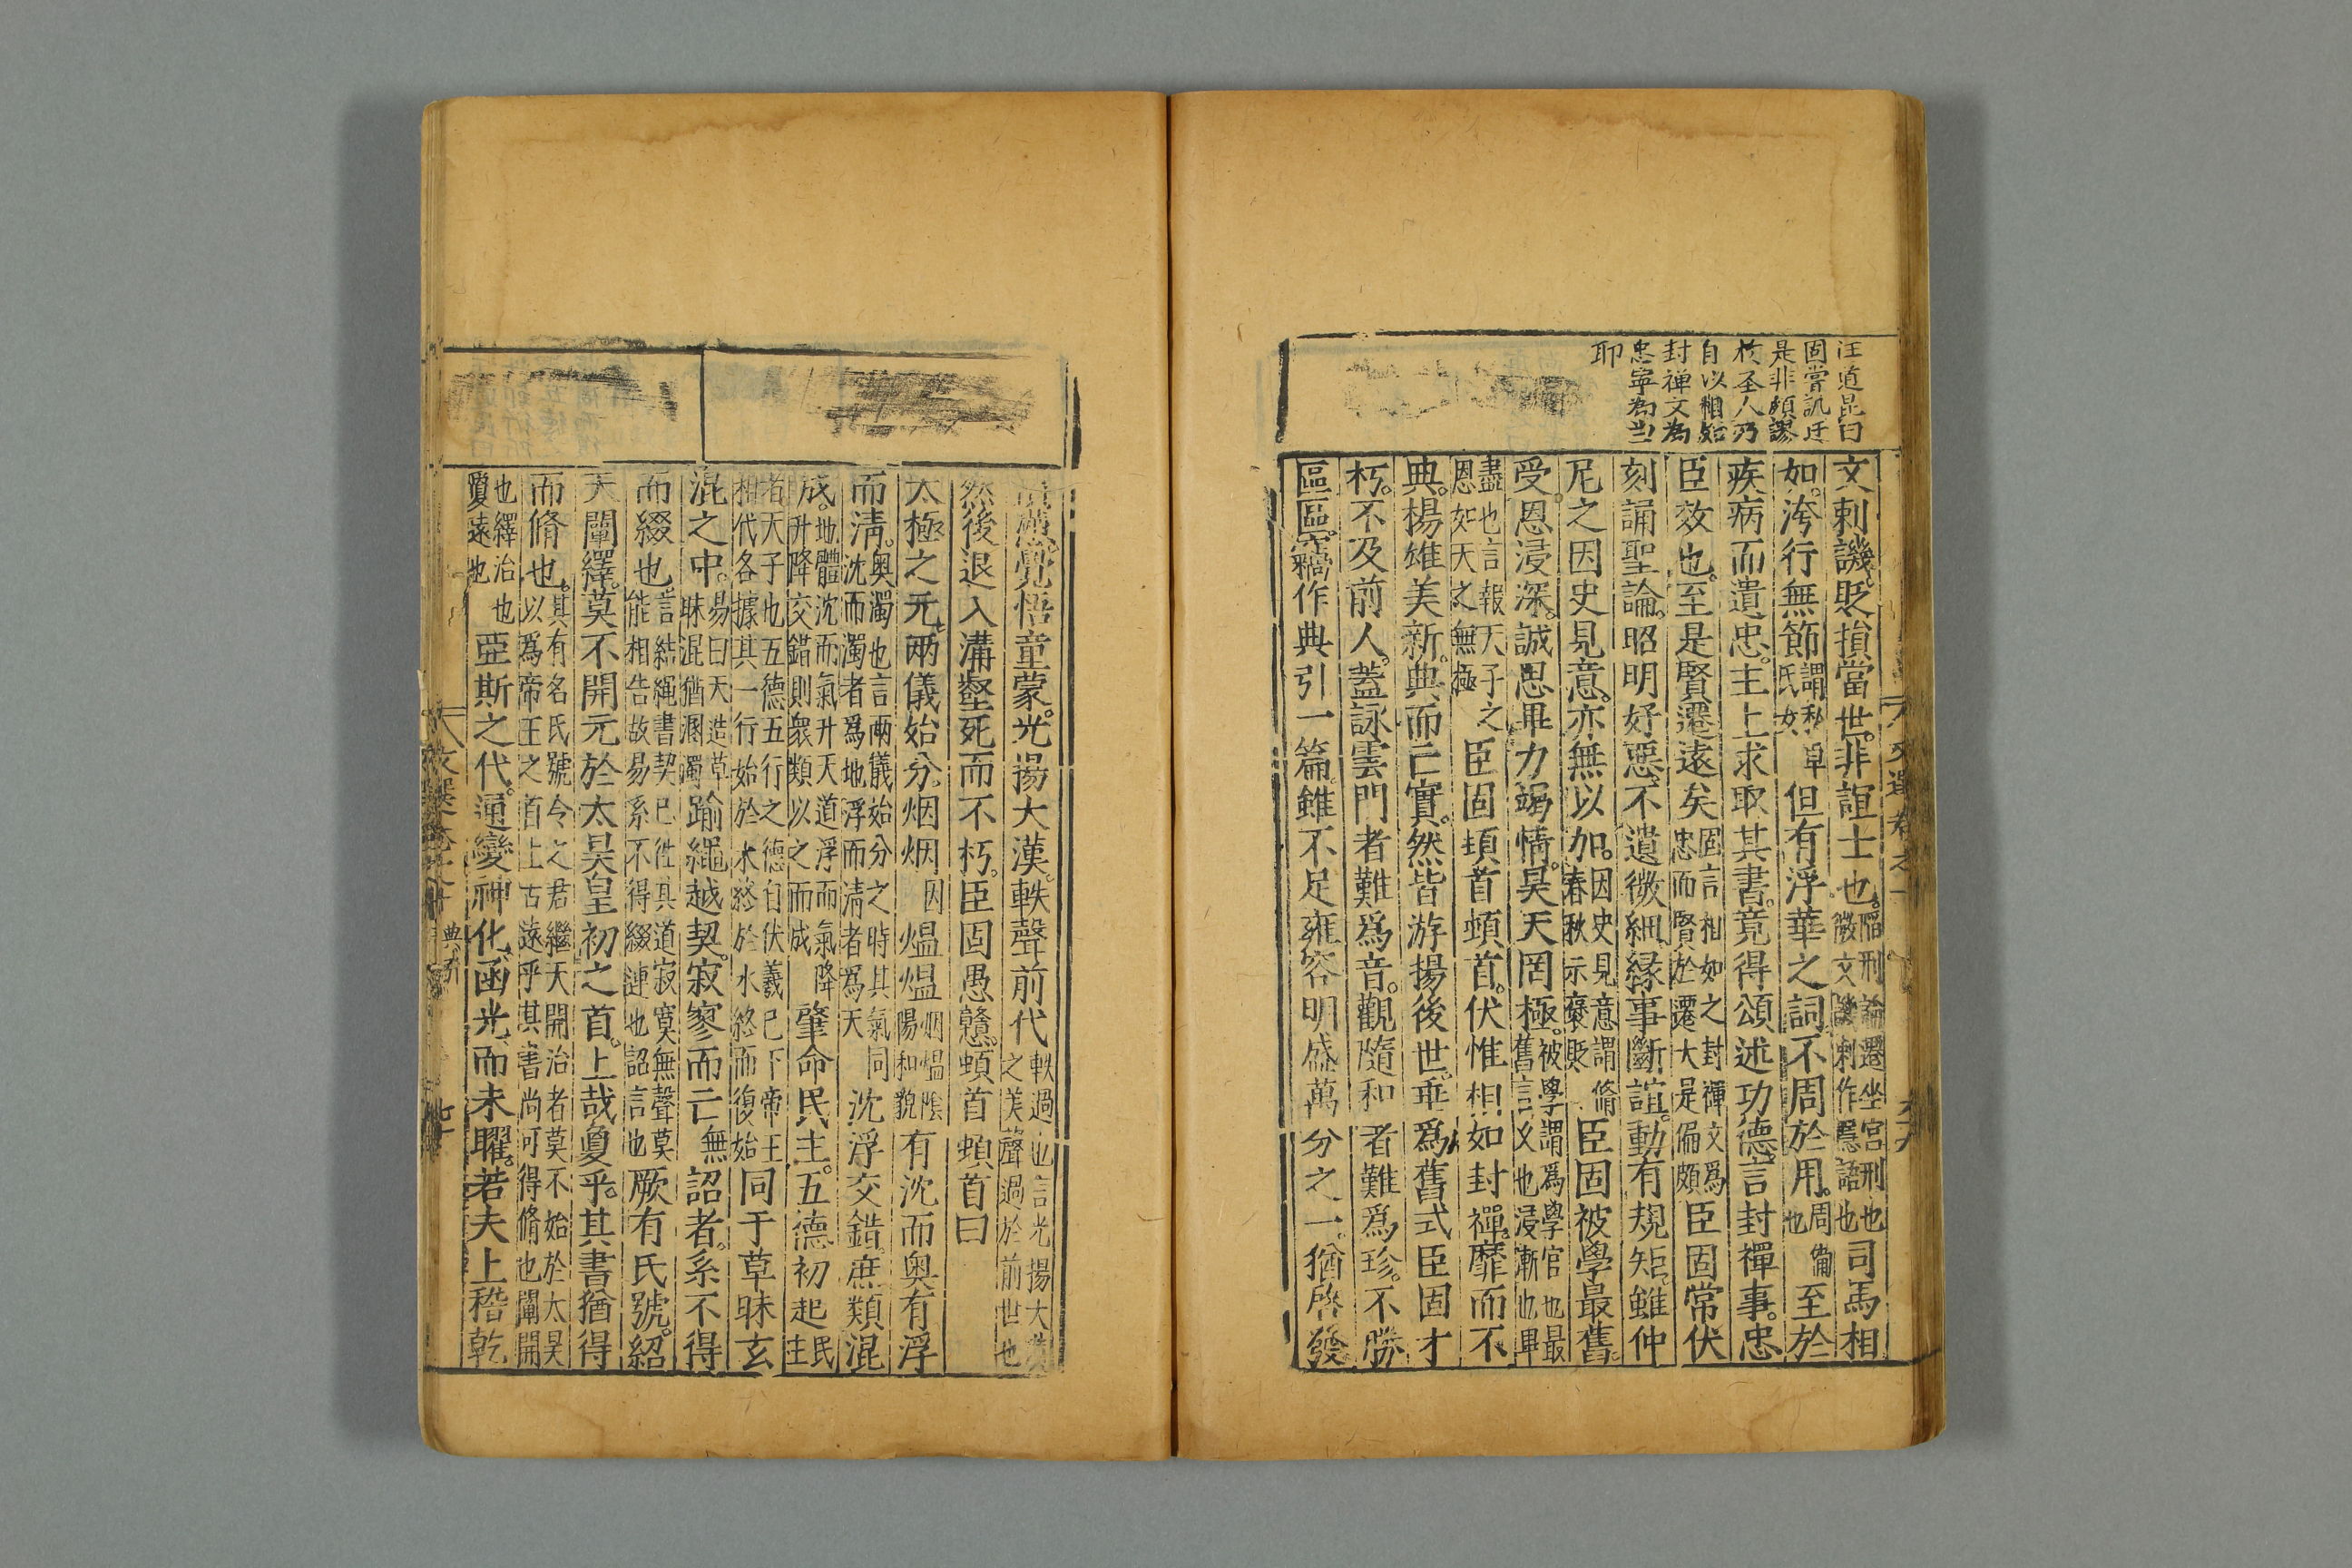 汪道昆曰
固嘗譏迁
是非頗謬
於圣人乃
自以相如
封禅文為
忠寧為当
耶
文刺譏貶損當世非誼士也陷刑論遷坐宮刑也微文譏刺作隱語也司馬相
如洿行無節謂私卓氏女但有浮華之詞不周於用周備也至於
疾病而遺忠主上求取其書竟得頌述功德言封禪事忠
臣效也至是賢遷遠矣固言相如之封禪文爲忠而賢於遷大是偏頗臣固常伏
刻誦聖論昭明好惡不遺微細緣事斷誼動有規矩雖仲
尼之因史見意亦無以加因史見意謂脩春秋示褒貶臣固被學最舊
受恩浸深誠思畢力竭情昊天罔極被學謂爲學官也最舊言久也浸漸也畢
盡也言報天子之恩如天之無極臣固頓首頓首伏惟相如封禪靡而不
典楊雄美新典而亡實然皆游揚後世垂爲舊式臣固才
朽不及前人蓋詠雲門者難爲音觀隨和者難爲珍不勝
區區竊作典引一篇雖不足雍容明盛萬分之一猶啓發
憤懣覺悟童蒙光揚大漢軼聲前代軼過也言光揚大漢之美聲過於前世也
然後退入溝壑死而不朽臣固愚戇頓首頓首曰
太極之元兩儀始分烟烟因熅熅烟熅陰陽和貌有沈而奧有浮
而清奧濁也言兩儀始分之時其氣同沈而濁者爲地浮而清者爲天沈浮交錯庶類混
成地體沈而氣升天道浮而氣降升降交錯則衆類以之而成肇命民主五德初起民主
者天子也五德五行之德自伏羲已下帝王相代各據其一行始於木終於水終而復始同于草昧玄
混之中易曰天造草昧混猶溷濁踰繩越契寂寥而亡無詔者系不得
而綴也言結繩書契已往其道寂寞無聲莫能相告故易系不得綴連也詔言也厥有氏號紹
天闡繹莫不開元於太昊皇初之首上哉夐乎其書猶得
而脩也其有名氏號令之君繼天開治者莫不始於太昊以爲帝王之首上古遠乎其書尚可得脩也闡開
也繹治也夐遠也亞斯之代通變神化函光而未曜若夫上稽乾
典引